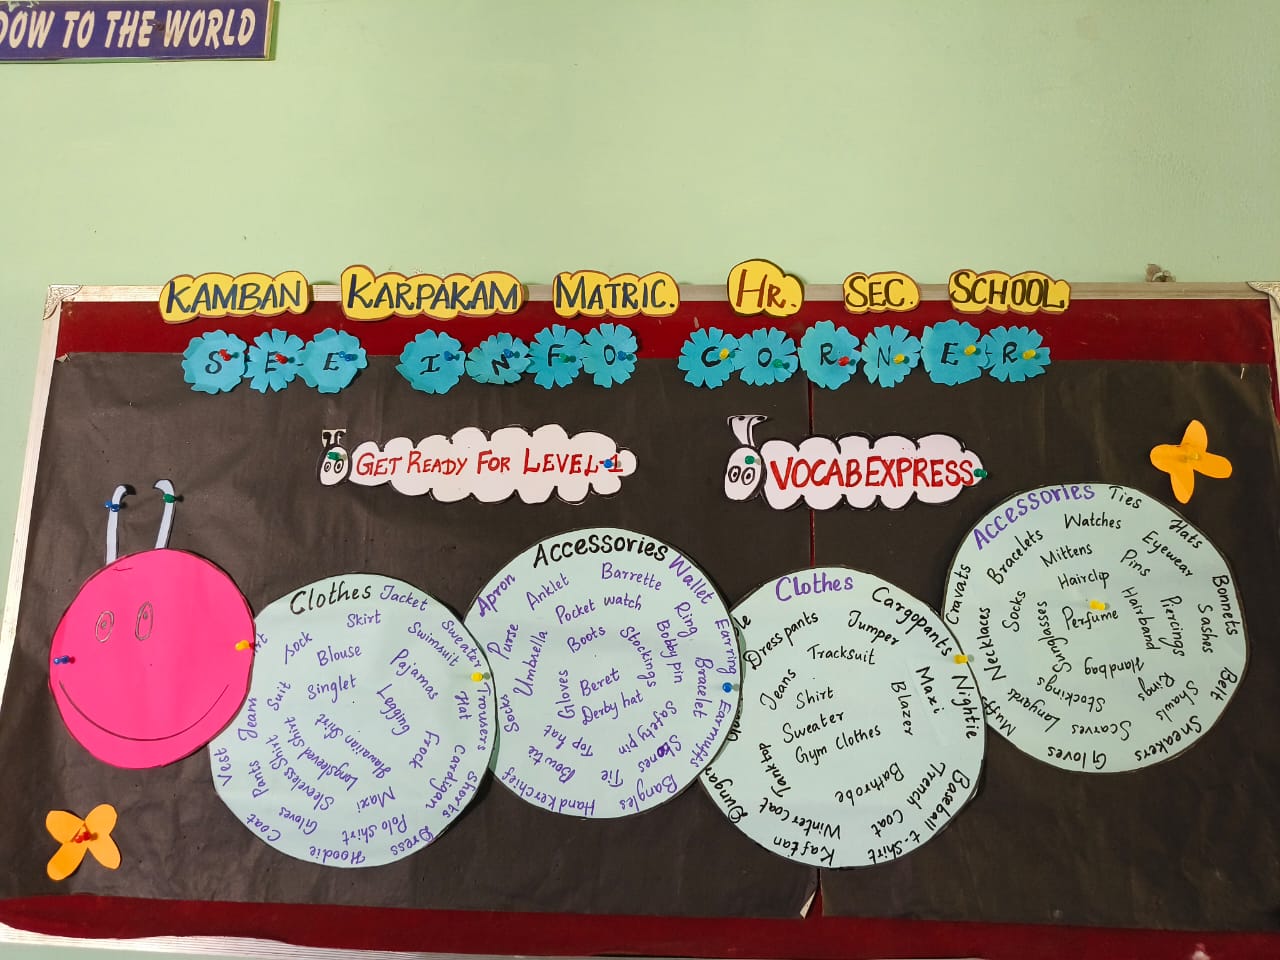 DOW TO THE WORLD
KAMBAN KARPAKAM MATRIC. HR. SEC. SCHOOL
SEE INFO CORNER
GET READY FOR LEVEL-1
VOCABEXPRESS
Clothes
Jacket
Sweater
Trousers
Cardigan
Shorts
Dress
Hoodie
Coat
Vest
Skirt
Swimsuit
Hat
Frock
Polo Shirt
Gloves
Pants
Jeans
Sock
Blouse
Pajamas
Legging
Maxi
Longsleeved Shirt
Sleeveless Shirt
Suit
Singlet
Hawaiian Shirt
Accessories
Wallet
Earring
Earmuffs
Bangles
Handkerchief
Socks
Purse
Apron
Anklet
Barrette
Ring
Bracelet
Bobby pin
Safety pin
Shoes
Tie
Bow tie
Top hat
Umbrella
Pocket watch
Stockings
Boots
Gloves
Beret
Derby hat
Clothes
Cargopants
Nightie
Baseball t-shirt
Trench Coat
Kaftan
Winter coat
Tank top
Dress pants
Jumper
Maxi
Blazer
Bathrobe
Tracksuit
Jeans
Shirt
Sweater
Gym clothes
Accessories
Ties
Hats
Bonnets
Sashes
Belt
Sneakers
Gloves
Muffs
Necklaces
Cravats
Bracelets
Watches
Eyewear
Piercings
Rings
Shawls
Scarves
Lanyard
Socks
Mittens
Pins
Hairband
Handbag
Stockings
Sunglasses
Hairclip
Perfume